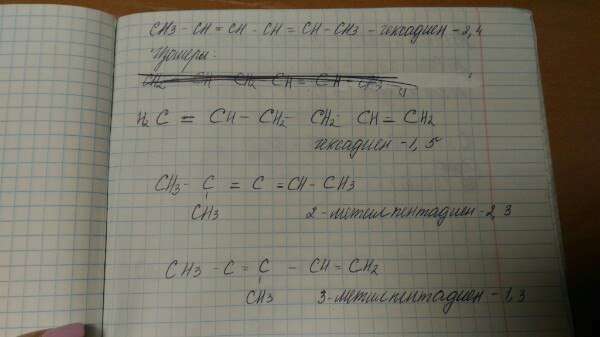 CH3 - CH = CH - CH = CH - CH3 - гексадиен - 2,4
Изомеры:
H2C = CH - CH2 - CH2 - CH = CH2
гексадиен - 1,5
CH3 - C = C = CH - CH3
CH3
2 - метилпентадиен - 2,3
CH3 - C = C - CH = CH2
CH3
3 - метилпентадиен - 1,3